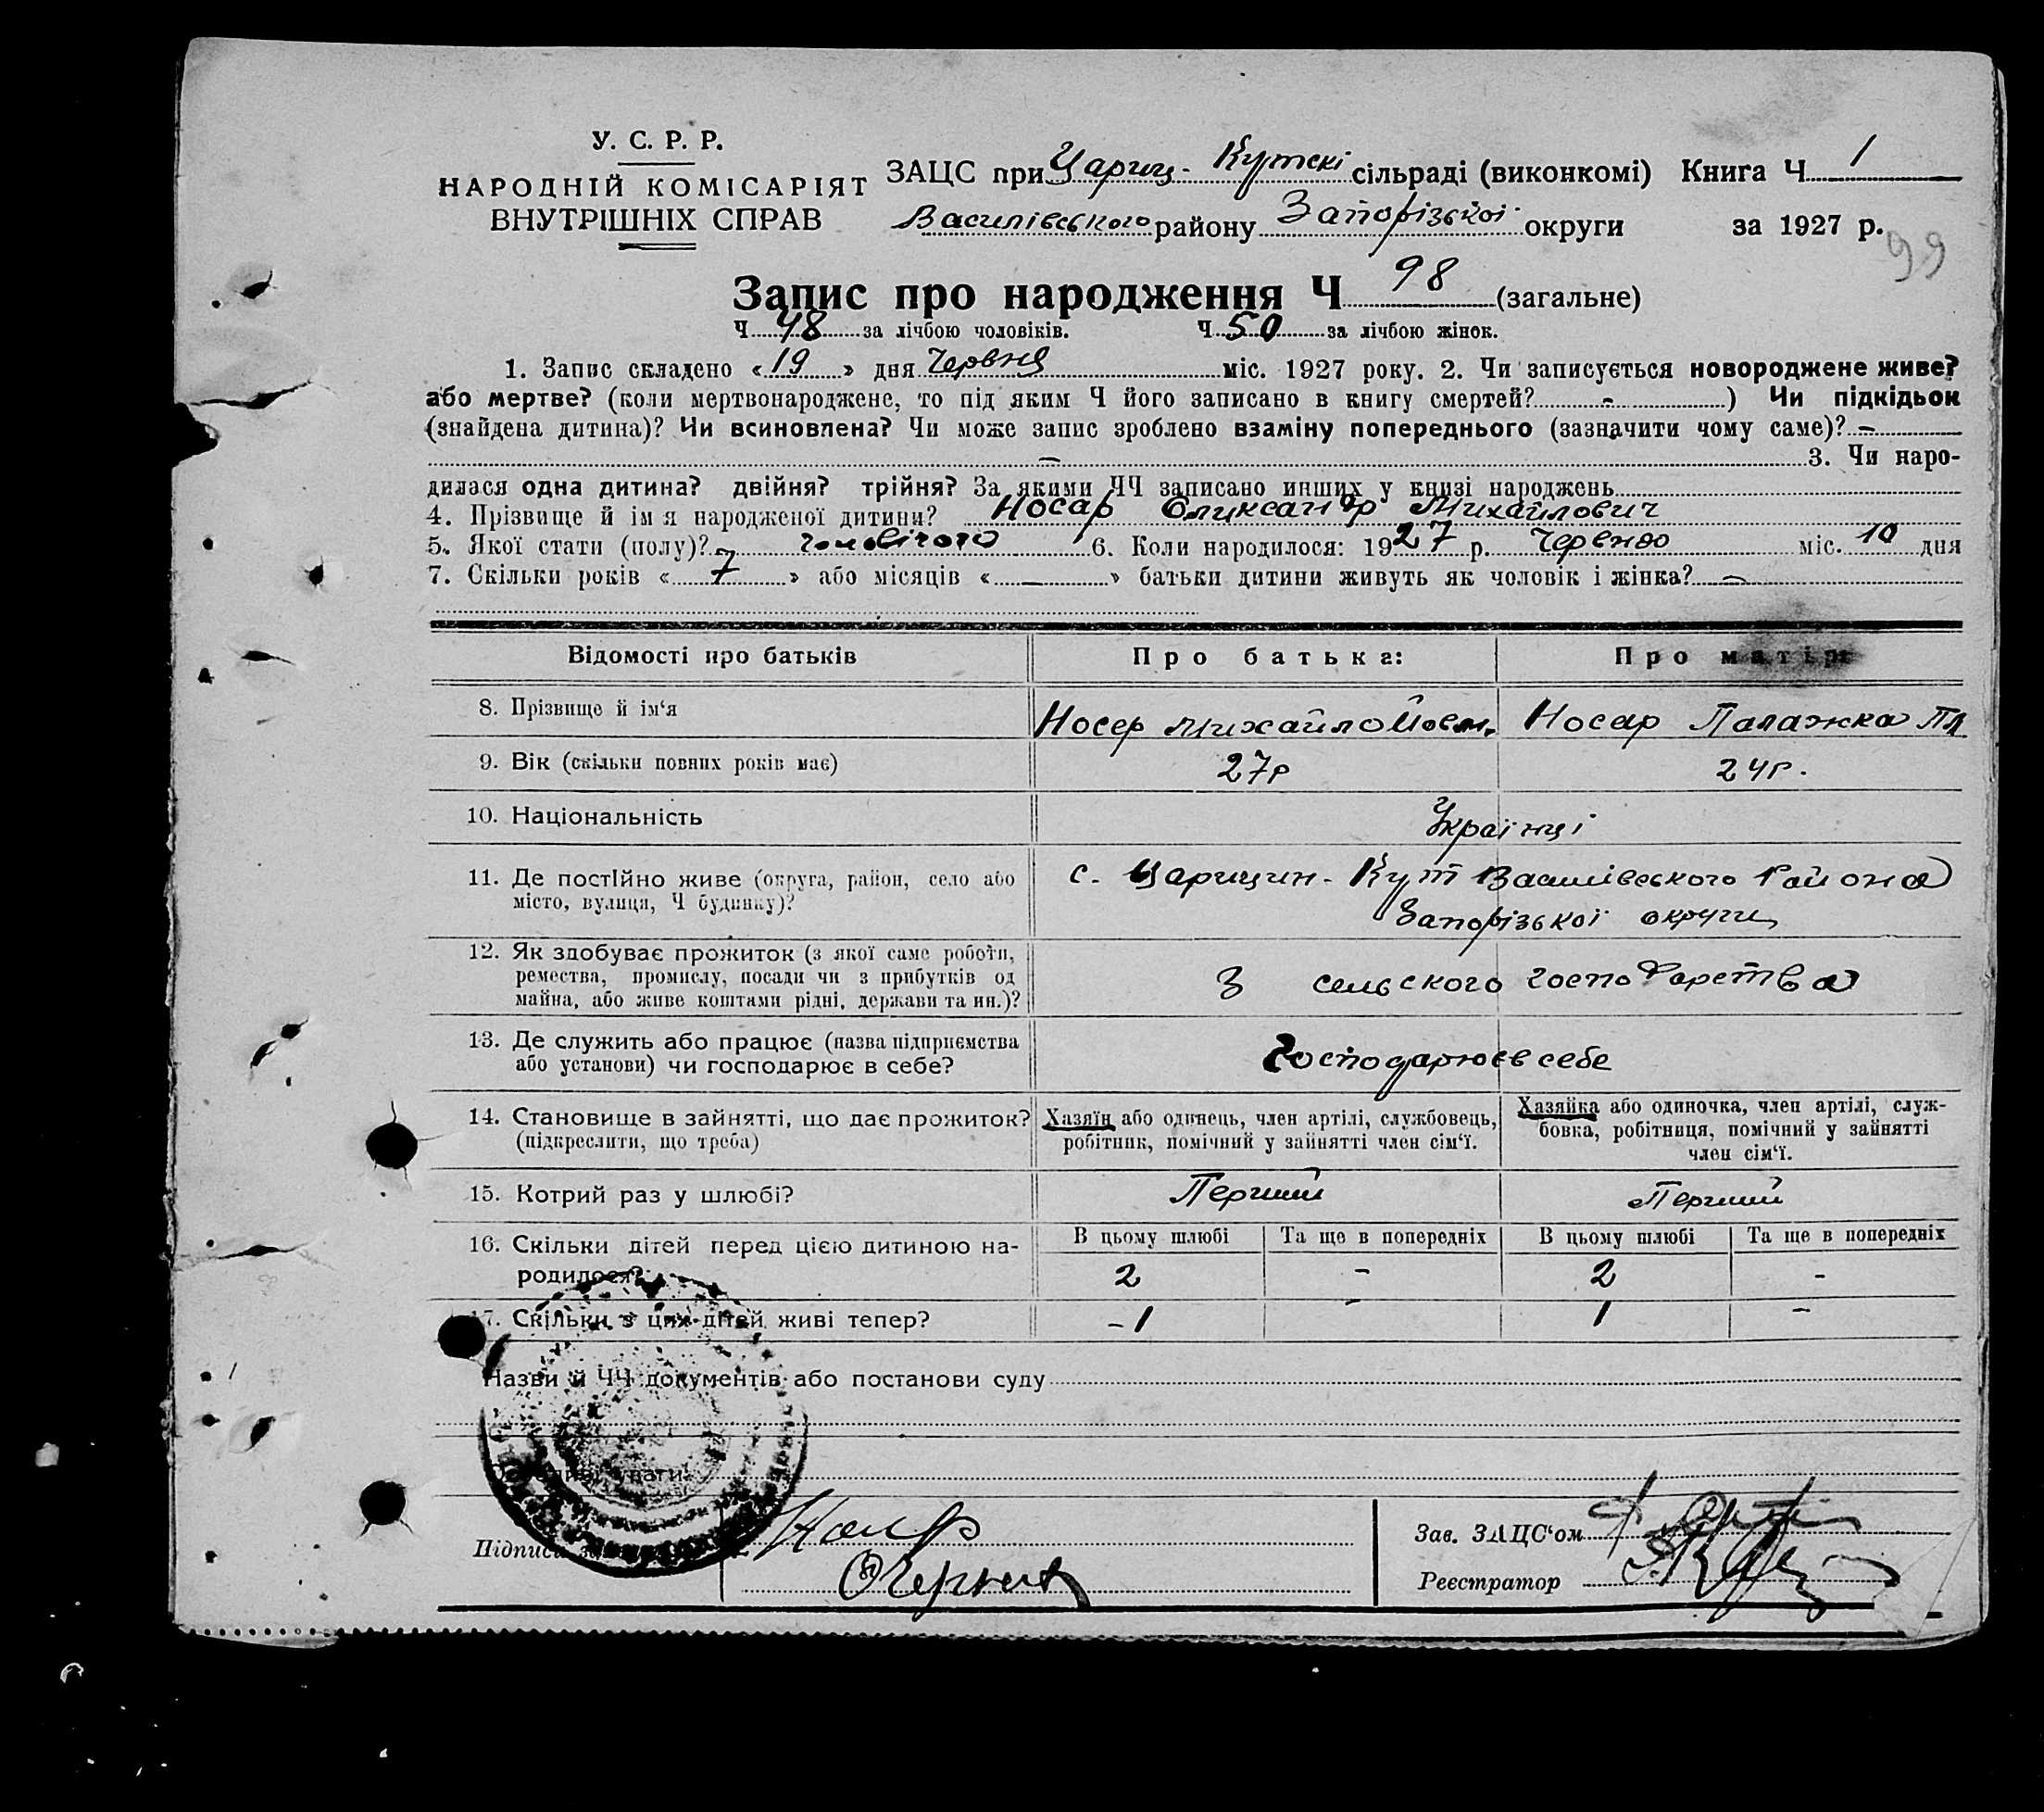 У. С. Р. Р.
НАРОДНІЙ КОМІСАРІЯТ
ВНУТРІШНІХ СПРАВ
ЗАЦС при Цариц-Кутскі сільраді (виконкомі) Книга Ч 1
Василівського району Запорізської округи за 1927 р.
99
Запис про народження Ч 98 (загальне)
Ч 48 за лічбою чоловіків. Ч 50 за лічбою жінок.
1. Запис складено « 19 » дня Червня міс. 1927 року. 2. Чи записується новороджене живе?
або мертве? (коли мертвонароджене, то під яким Ч його записано в книгу смертей? - ) Чи підкідьок
(знайдена дитина)? Чи всиновлена? Чи може запис зроблено взаміну попереднього (зазначити чому саме)? -
- 3. Чи наро-
дилася одна дитина? двійня? трійня? За якими ЧЧ записано инших у книзі народжень
4. Прізвище й ім я народженої дитини? Носар Оликсандр Михайлович
5. Якої стати (полу)? чоловічого 6. Коли народилося: 1927 р. Червню міс. 10 дня
7. Скільки років « 7 » або місяців « - » батьки дитини живуть як чоловік і жінка? -
Відомості про батьків Про батька: Про матір:
8. Прізвище й ім'я Носар Михайло Йосип. Носар Палажка Пл
9. Вік (скільки повних років має) 27р 24р.
10. Національність Українці
11. Де постійно живе (округа, район, село або с. Царицин-Кут Василівського Района
місто, вулиця, Ч будинку)? Запорізької округи
12. Як здобуває прожиток (з якої саме роботи,
ремества, промислу, посади чи з прибутків од З сельского господарства
майна, або живе коштами рідні, держави та ин.)?
13. Де служить або працює (назва підприємства Господарює в себе
або установи) чи господарює в себе?
14. Становище в зайнятті, що дає прожиток? Хазяїн або одинець, член артілі, службовець, Хазяйка або одиночка, член артілі, служ-
(підкреслити, що треба) робітник, помічний у зайнятті член сім'ї. бовка, робітниця, помічний у зайнятті
член сім'ї.
15. Котрий раз у шлюбі? Перший Перший
16. Скільки дітей перед цією дитиною на- В цьому шлюбі Та ще в попередніх В цьому шлюбі Та ще в попередніх
родилося? 2 - 2 -
17. Скільки з цих дітей живі тепер? -1 - 1 -
Назви й ЧЧ документів або постанови суду
уваги
Підписи
Зав. ЗАЦС'ом
Реєстратор